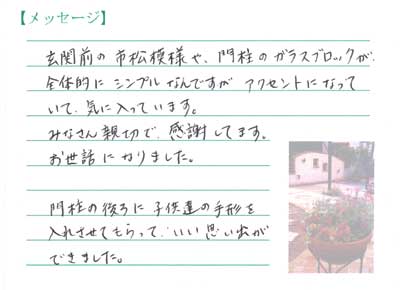 【メッセージ】
玄関前の市松模様や、門柱のガラスブロックが、
全体的にシンプルなんですが アクセントになって
いて、気に入っています。
みなさん親切で、感謝してます。
お世話になりました。
門柱の後ろに子供達の手形を
入れさせてもらって、いい思い出が
できました。